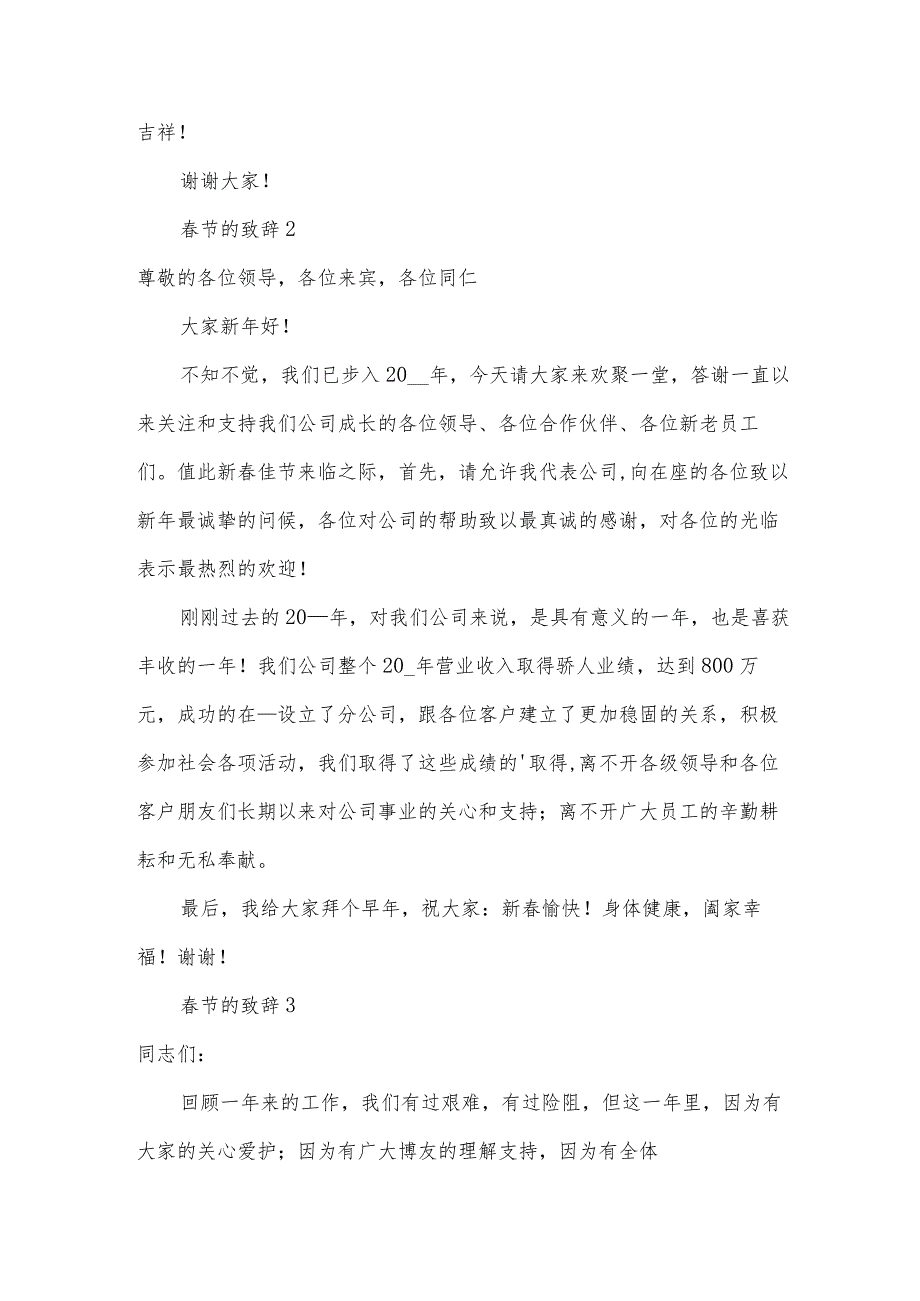 吉祥！
谢谢大家！
春节的致辞2
尊敬的各位领导，各位来宾，各位同仁
大家新年好！
不知不觉，我们已步入20__年，今天请大家来欢聚一堂，答谢一直以
来关注和支持我们公司成长的各位领导、各位合作伙伴、各位新老员工
们。值此新春佳节来临之际，首先，请允许我代表公司,向在座的各位致以
新年最诚挚的问候，各位对公司的帮助致以最真诚的感谢，对各位的光临
表示最热烈的欢迎！
刚刚过去的20—年，对我们公司来说，是具有意义的一年，也是喜获
丰收的一年！我们公司整个20_年营业收入取得骄人业绩，达到800万
元，成功的在—设立了分公司，跟各位客户建立了更加稳固的关系，积极
参加社会各项活动，我们取得了这些成绩的'取得,离不开各级领导和各位
客户朋友们长期以来对公司事业的关心和支持；离不开广大员工的辛勤耕
耘和无私奉献。
最后，我给大家拜个早年，祝大家：新春愉快！身体健康，阖家幸
福！谢谢！
春节的致辞3
同志们：
回顾一年来的工作，我们有过艰难，有过险阻，但这一年里，因为有
大家的关心爱护；因为有广大博友的理解支持，因为有全体